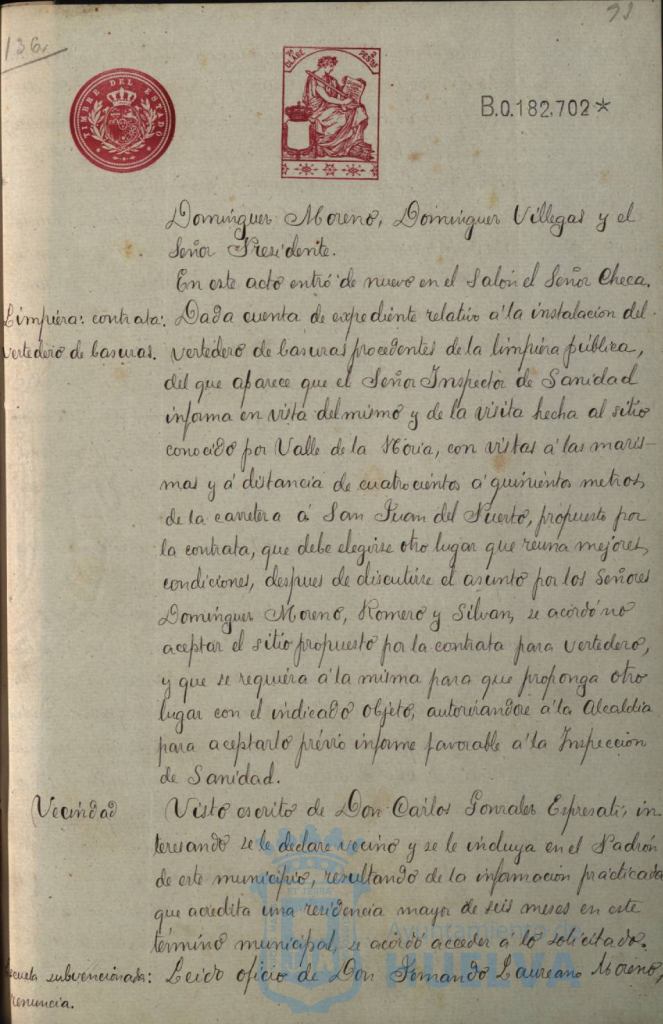 136.
91
TIMBRE DEL ESTADO
CLASE
PESETAS
B.0.182,702*
Dominguez Moreno, Dominguez Villegas y el
Señor Presidente.
En este acto entró de nuevo en el Salon el Señor Checa.
Limpiéza: contrata:
vertedero de basuras.
Dada cuenta de expediente relativo á la instalacion del
vertedero de basuras procedentes de la limpiéza pública,
del que aparece que el Señor Inspector de Sanidad
informa en vista del mismo y de la visita hecha al sitio
conocido por Valle de la Noria, con vistas á las maris-
mas y á distancia de cuatrocientos á quinientos metros
de la carretera á San Juan del Puerto, propuesto por
la contrata, que debe elegirse otro lugar que reuna mejores
condiciones, despues de discutirse el asunto por los Señores
Dominguez Moreno, Romero y Silvan, se acordó no
aceptar el sitio propuesto por la contrata para vertedero,
y que se requiera á la misma para que proponga otro
lugar con el indicado objeto, autorizandose á la Alcaldia
para aceptarlo prévio informe favorable á la Inspeccion
de Sanidad.
Vecindad
Visto escrito de Don Carlos Gonzalez Espresati, in-
teresando se le declare vecino y se le incluya en el Padrón
de este municipio, resultando de la informacion practicada
que acredita una residencia mayor de seis meses en este
término municipal, se acordó acceder á lo solicitado.
Escuela subvencionada:
renuncia.
Leido oficio de Don Fernando Laureano Moreno,
Ayuntamiento de
HUELVA